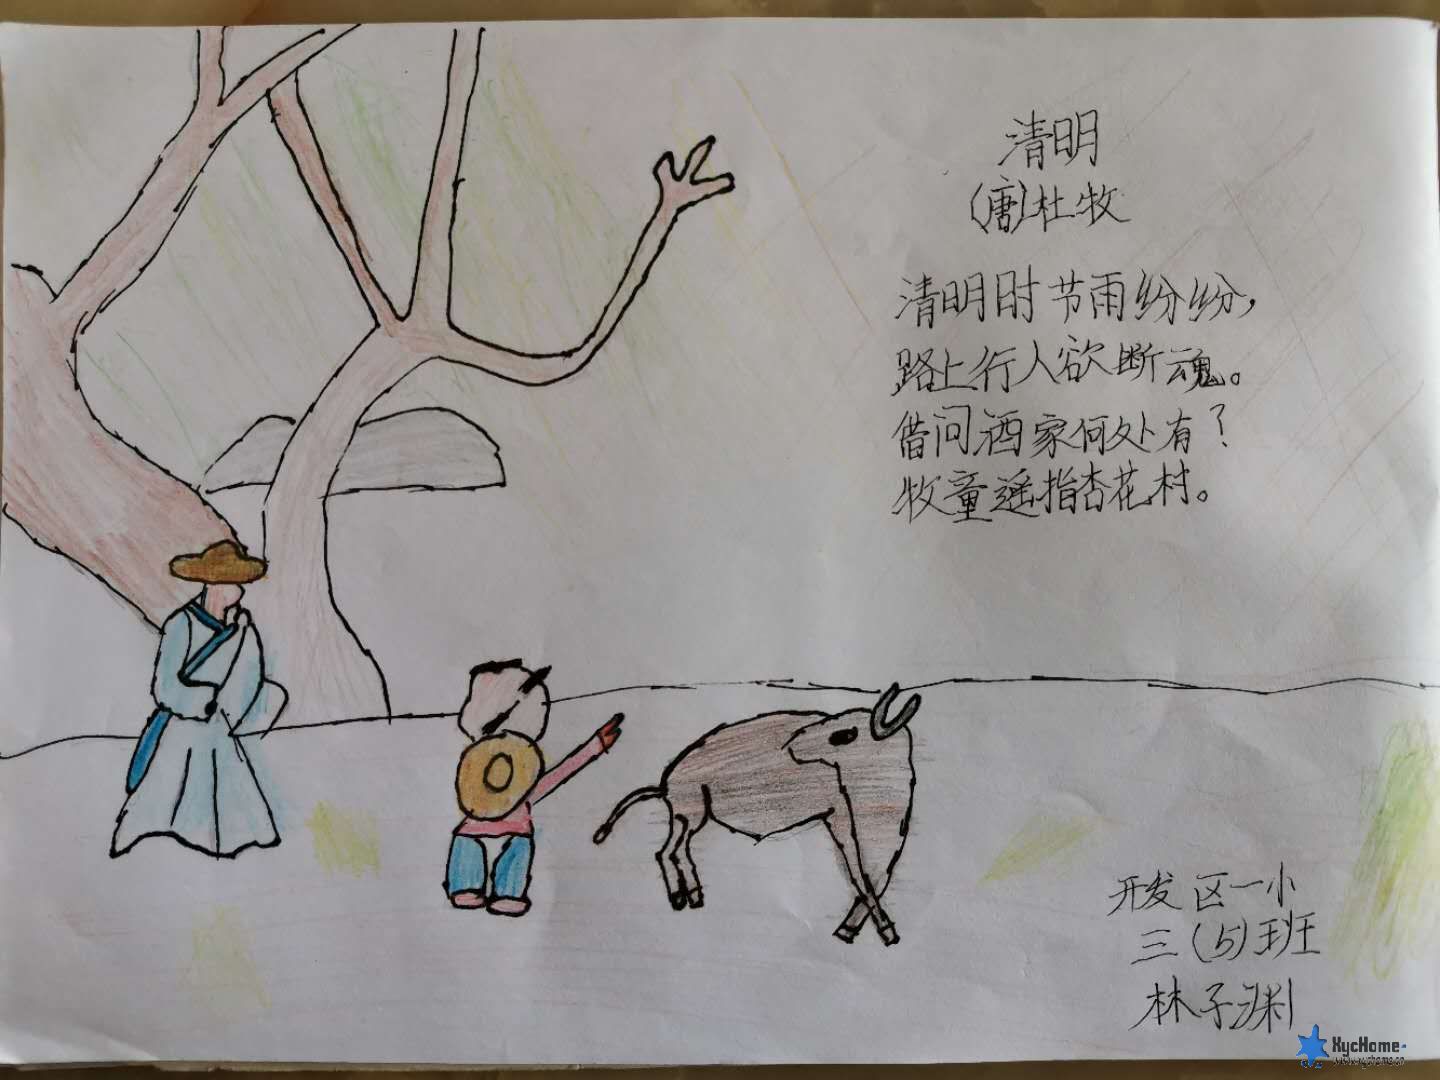 清明
(唐)杜牧
清明时节雨纷纷,
路上行人欲断魂。
借问酒家何处有?
牧童遥指杏花村。
开发区一小
三(5)班
林子渊
KycHome
www.kychome.cn